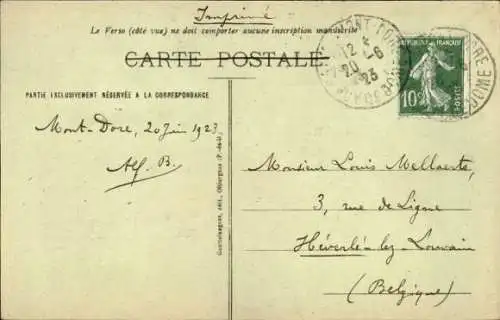 Imprimé
Le Verso (côté vue) ne doit comporter aucune inscription manuscrite
CARTE POSTALE
MONT-DORE
12 *
20 -6
23
PUY-DE-DOME
RÉPUBLIQUE FRANÇAISE
10c
POSTES
PARTIE EXCLUSIVEMENT RÉSERVÉE A LA CORRESPONDANCE
Mont-Dore, 20 Juin 1923
Alf. B.
édit., Olliergues (P.-de-D.)
Monsieur Louis Mellaerts,
3, rue de Ligne
Héverlé-lez-Louvain
(Belgique)